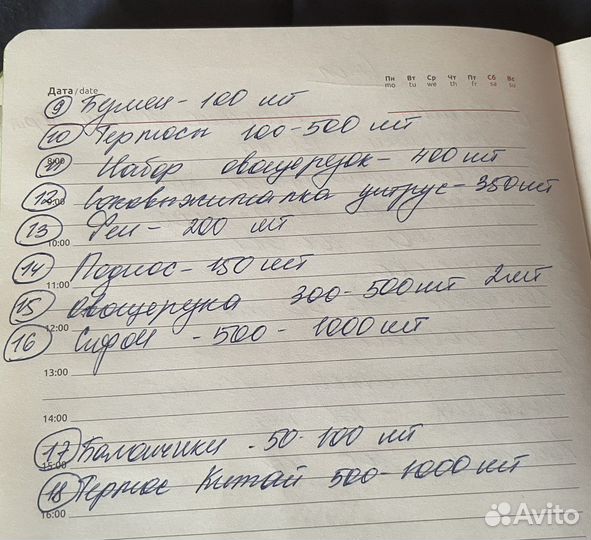 Дата/date
Пн Вт Ср Чт Пт Сб Вс
mo tu we th fr sa su
9 - 100 шт
10 Термосы 100-500 шт
8:00
11 Набор овощерезок - 400 шт
9:00
12 Соковыжималка цитрус - 350 шт
13 Фен - 200 шт
10:00
14 Поднос - 150 шт
11:00
15 овощерезка 300-500 шт 2 шт
12:00
16 Сифон - 500 - 1000 шт
13:00
14:00
17 Баллончики - 50-100 шт
15:00
18 Термос Китай 500-1000 шт
16:00
Avito